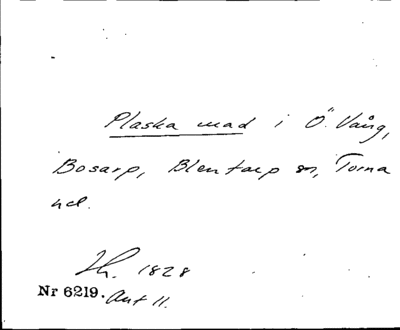 Plaska mad i Ö. Vång,
Bosarp, Blentarp sn, Torna
hd.
Lh. 1828
Nr 6219. Akt 11.